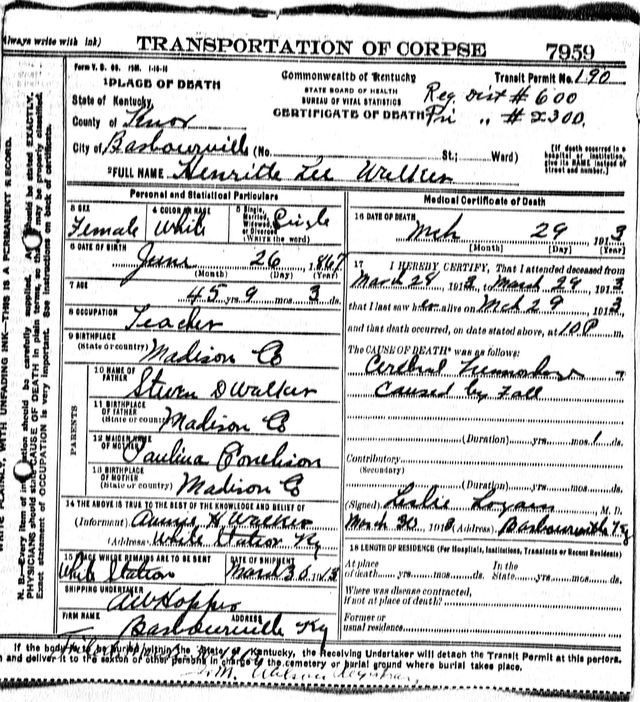 (Always write with ink)
TRANSPORTATION OF CORPSE 7959
Form V. S.
Transit Permit No. 190
PLACE OF DEATH
Commonwealth of Kentucky
STATE BOARD OF HEALTH
BUREAU OF VITAL STATISTICS
CERTIFICATE OF DEATH
Reg. Dist # 600
Pri " # 2300
State of Kentucky,
County of Knox
City of Barbourville (No. St.; Ward)
[If death occurred in a hospital or institution, give its NAME instead of street and number.]
FULL NAME Henritte Lee Walker
Personal and Statistical Particulars
3 SEX Female
4 COLOR OR RACE White
5 Single, Married, Widowed, or Divorced (WRITE the word) Single
6 DATE OF BIRTH June 26, 1867
(Month) (Day) (Year)
7 AGE 45 yrs 9 mos. 3 ds.
8 OCCUPATION Teacher
9 BIRTHPLACE (State or country) Madison Co
PARENTS
10 NAME OF FATHER Steven D Walker
11 BIRTHPLACE OF FATHER (State or country) Madison Co
12 MAIDEN NAME OF MOTHER Paulina
13 BIRTHPLACE OF MOTHER (State or country) Madison Co
14 THE ABOVE IS TRUE TO THE BEST OF THE KNOWLEDGE AND BELIEF OF
(Informant) Annie H Walker
(Address) White Station Ky
15 PLACE WHERE REMAINS ARE TO BE SENT White Station
DATE OF SHIPMENT March 30 1913
SHIPPING UNDERTAKER AW Hopper
FIRM NAME ADDRESS
Barbourville Ky
Medical Certificate of Death
16 DATE OF DEATH Mch 29 1913
(Month) (Day) (Year)
17 I HEREBY CERTIFY, That I attended deceased from
March 28, 1913, to March 29, 1913
that I last saw her alive on Mch 29 1913
and that death occurred, on date stated above, at 10 P m.
The CAUSE OF DEATH* was as follows:
Cerebral
Caused by Fall
(Duration) yrs. mos. 1 ds.
Contributory
(Secondary)
(Duration) yrs. mos. ds.
(Signed) Leslie Logan, M. D.
March 30, 1913 (Address) Barbourville Ky
18 LENGTH OF RESIDENCE (For Hospitals, Institutions, Transients or Recent Residents)
At place of death yrs. mos. ds. In the State yrs. mos. ds.
Where was disease contracted,
If not at place of death?
Former or
usual residence
If the body is to be buried within the State of Kentucky, the Receiving Undertaker will detach the Transit Permit at this perfora-
and deliver it to the sexton or other persons in charge of the cemetery or burial ground where burial takes place.
Registrar
WRITE PLAINLY, WITH UNFADING INK—THIS IS A PERMANENT RECORD.
N. B.—Every item of information should be carefully supplied. AGE should be stated EXACTLY.
PHYSICIANS should state CAUSE OF DEATH in plain terms, so that it may be properly classified.
Exact statement of OCCUPATION is very important. See instructions on back of certificate.